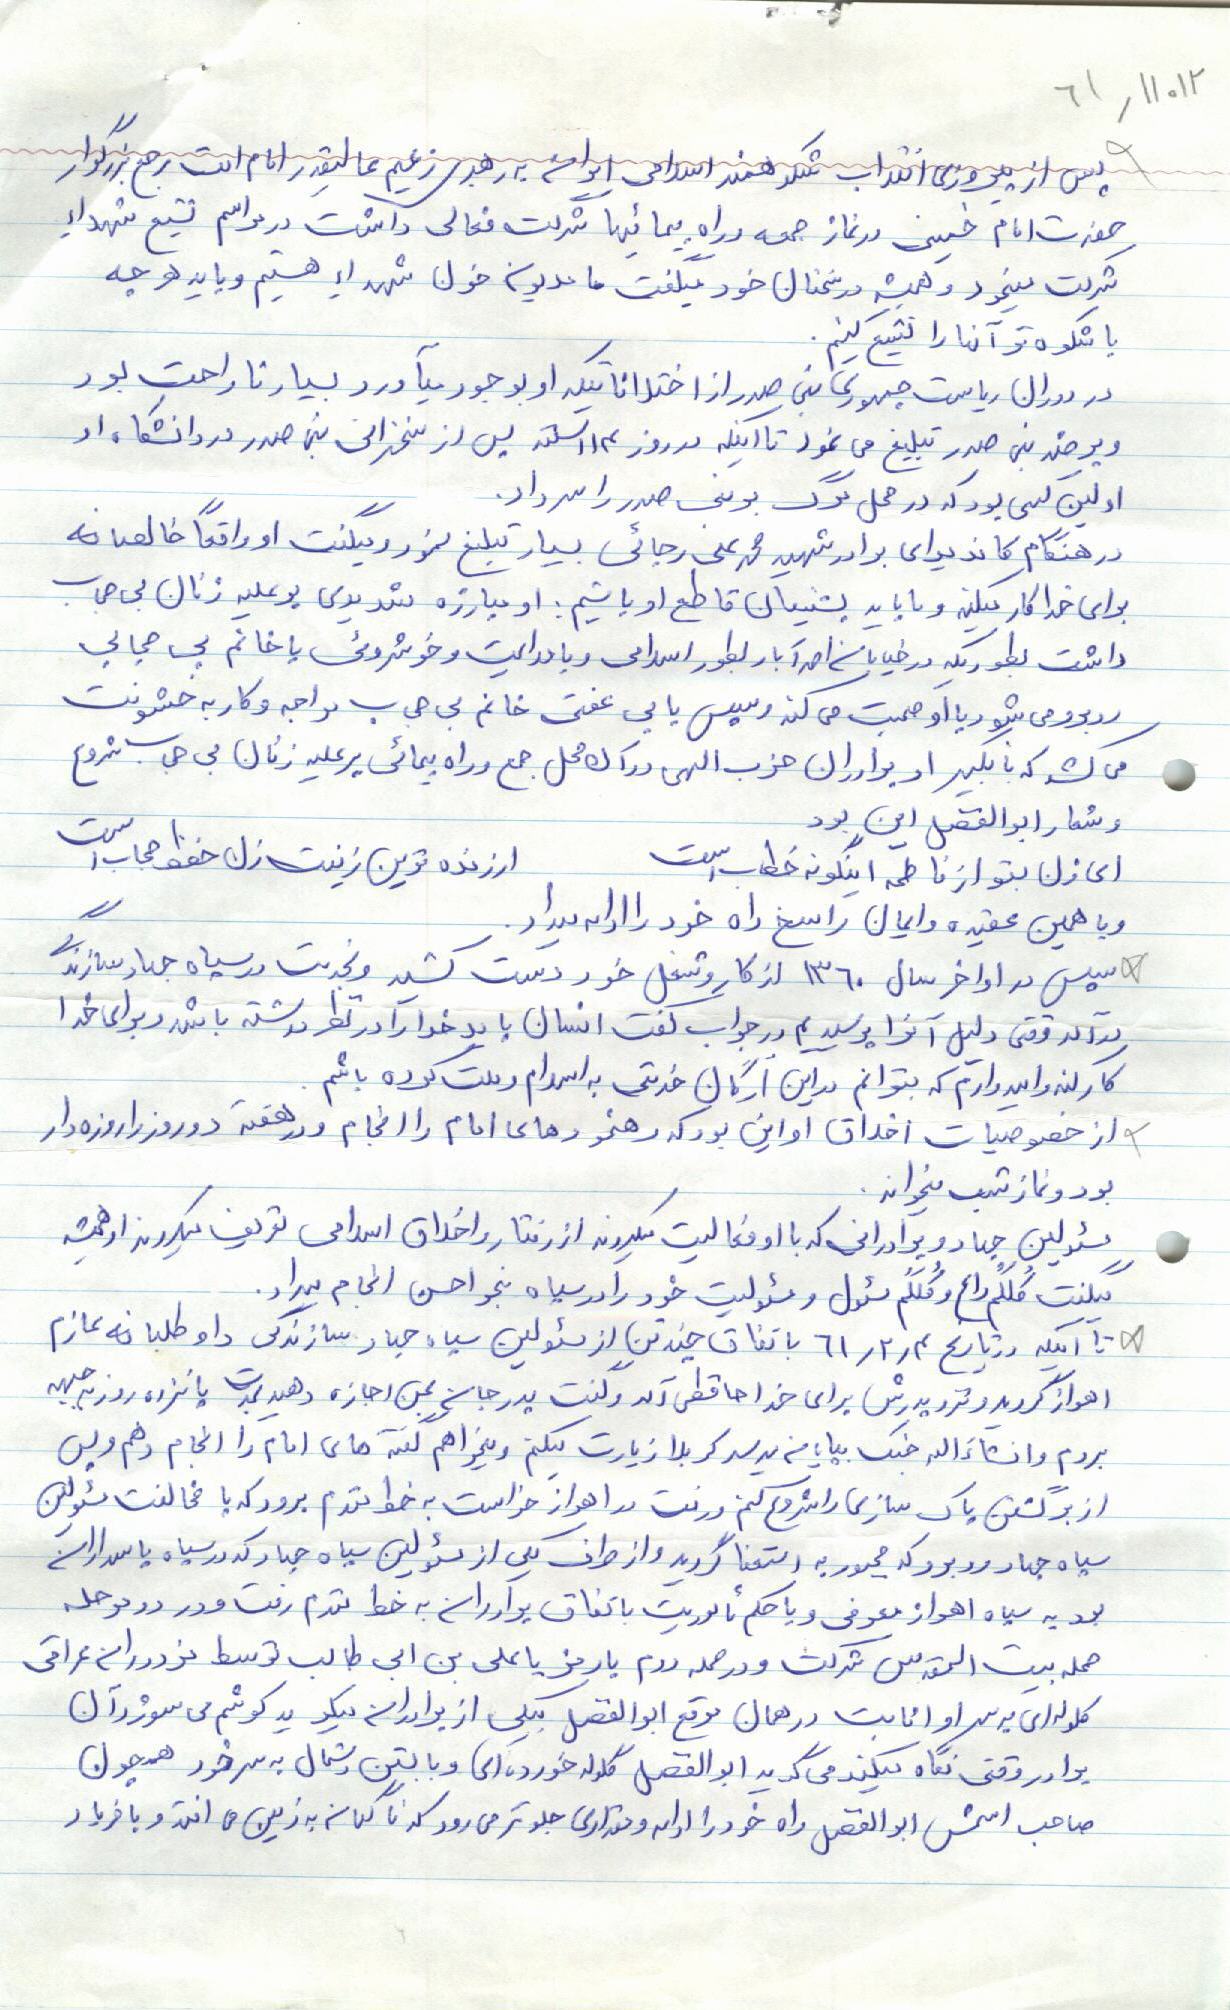 ۶۱٫۱۱۰۱۲
پس از پیروزی انقلاب شکوهمند اسلامی ایران به رهبری زعیم عالیقدر امام امت مرجع بزرگوار
حضرت امام خمینی در نماز جمعه و راه پیمائیها شرکت فعالی داشت در مراسم تشیع شهداء
شرکت مینمود و همیشه در سخنان خود میگفت ما مدیون خون شهداء هستیم و باید هر چه
با شکوه تر آنها را تشیع کنیم.
در دوران ریاست جمهوری بنی صدر از اختلافاتیکه او بوجود میآورد بسیار ناراحت بود
و بر ضد بنی صدر تبلیغ می نمود تا اینکه در روز ۱۴ اسفند پس از سخنرانی بنی صدر در دانشگاه او
اولین کسی بود که در محل مرگ بر بنی صدر را سر داد.
در هنگام کاندیدای برادر شهید محمد علی رجائی بسیار تبلیغ نمود و میگفت او واقعاً خالصانه
برای خدا کار میکند و ما باید پشتیبان قاطع او باشیم. او مبارزه شدیدی بر علیه زنان بی حجاب
داشت بطوریکه در خیابان بطور اسلامی و با ملایمت و خوشروئی با خانم بی حجابی
روبرو می شود با او صحبت می کند و سپس با بی عفتی خانم بی حجاب مواجه و کار به خشونت
می کشد که با تکبیر او برادران حزب الهی در آن محل جمع و راه پیمائی بر علیه زنان بی حجاب شروع
و شعار ابوالفضل این بود
ای زن بتو از فاطمه اینگونه خطاب است ارزنده ترین زینت زن حفظ حجاب است
و با همین عقیده و ایمان راسخ راه خود را ادامه میداد.
سپس در اواخر سال ۱۳۶۰ از کار و شغل خود دست کشید و بخدمت در سپاه جهاد سازندگی
درآمد وقتی دلیل آنرا پرسیدیم در جواب گفت انسان باید خدا را در نظر داشته باشد و برای خدا
کار کند و امیدوارم که بتوانم در این ارگان خدمتی به اسلام و ملت کرده باشم.
از خصوصیات اخلاق او این بود که رهنمودهای امام را انجام و در هفته دو روز را روزه دار
بود و نماز شب میخواند.
مسئولین جهاد و برادرانی که با او فعالیت میکردند از رفتار و اخلاق اسلامی تعریف میکردند او همیشه
میگفت کُلُکُم راعٍ و کُلُکُم مسئول و مسئولیت خود را در سپاه بنحو احسن انجام میداد.
تا اینکه در تاریخ ۶۱٫۲٫۴ باتفاق چند تن از مسئولین سپاه جهاد سازندگی داوطلبانه عازم
اهواز گردید و نزد پدرش برای خدا حافظی آمد و گفت پدر جان بمن اجازه دهید بمدت پانزده روز به جبهه
بروم و انشاءالله جنگ بپایان برسد کربلا زیارت میکنم و میخواهم گفته های امام را انجام دهم و پس
از برگشتن پاک سازی را شروع کنم و رفت در اهواز خواست به خط مقدم برود که با مخالفت مسئولین
سپاه جهاد روبرو که مجبور به استعفا گردید و از طرف یکی از مسئولین سپاه جهاد که در سپاه پاسداران
بود به سپاه اهواز معرفی و با حکم مأموریت باتفاق برادران به خط مقدم رفت و در دو مرحله
حمله بیت المقدس شرکت و در حمله دوم با رمز یا علی بن ابی طالب توسط مزدوران عراقی
گلوله‌ای به سر او اصابت در همان موقع ابوالفضل بیکی از برادران میگوید گوشم می سوزد آن
برادر وقتی نگاه میکند می گوید ابوالفضل گلوله خورده‌ای و با بستن دستمال به سر خود همچون
صاحب اسمش ابوالفضل راه خود را ادامه و مقداری جلوتر می رود که ناگهان به زمین می افتد و با فریاد